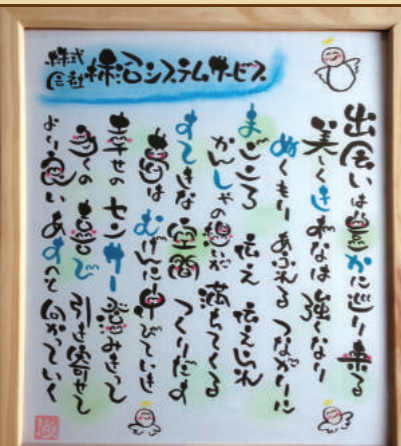 株式会社 柿沼システムサービス
出会いは豊かに巡り来る
美しくきずなは強くなり
ぬくもり あふれる つながりに
まごころ 伝え 伝えられ
かんしゃの想いが 満ちてくる
すてきな 空間 つくりだす
夢は むげんに 伸びていき
幸せの センサー 澄みきって
多くの 喜び 引き寄せて
より良いあすへと 向かっていく